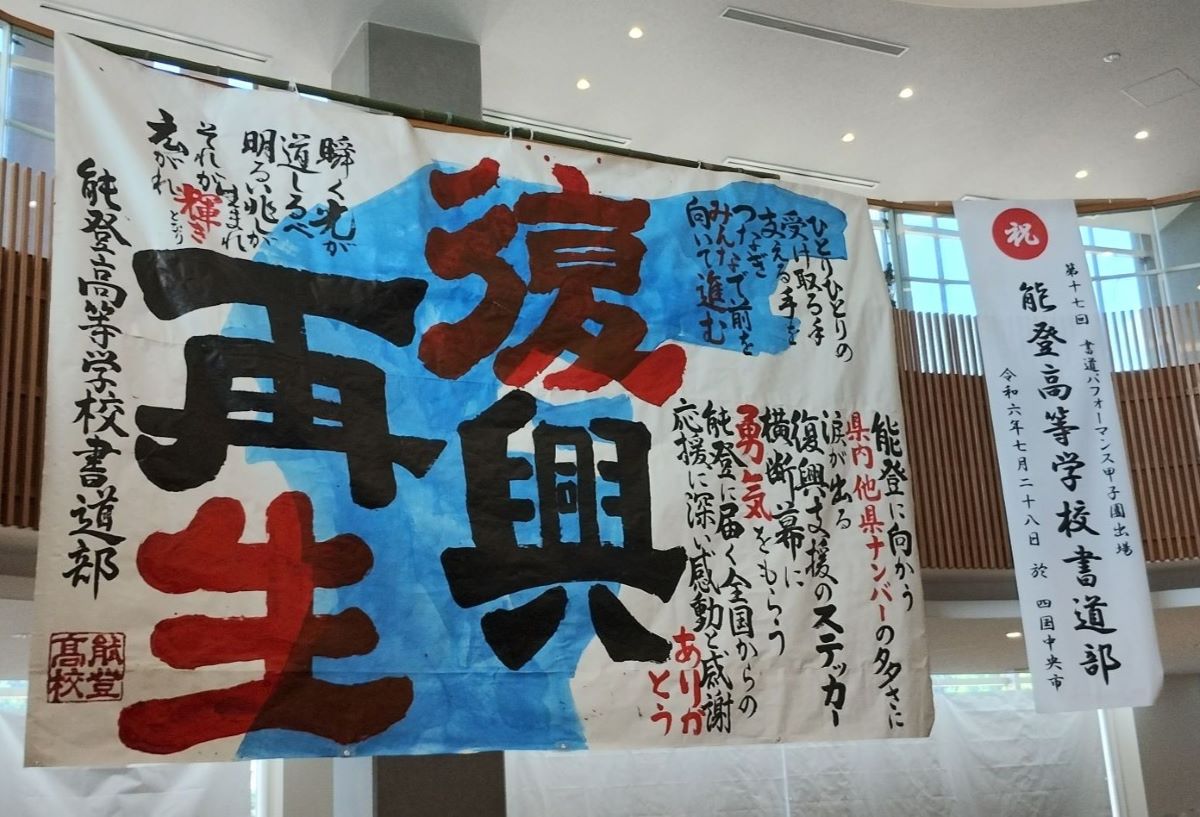 ひとりひとりの
受け取る手
支える手を
つなぎ
みんなで前を
向いて進む
能登に向かう
県内他県ナンバーの多さに
涙が出る
復興支援のステッカー
横断幕に
勇気をもらう
能登に届く全国からの
応援に深い感動と感謝
ありがとう
復興
再生
瞬く光が
道しるべ
明るい兆しが
生まれ
それが輝きとなり
広がれ
能登高等学校書道部
能登
高校
祝
第十七回 書道パフォーマンス甲子園出場
能登高等学校書道部
令和六年七月二十八日 於 四国中央市